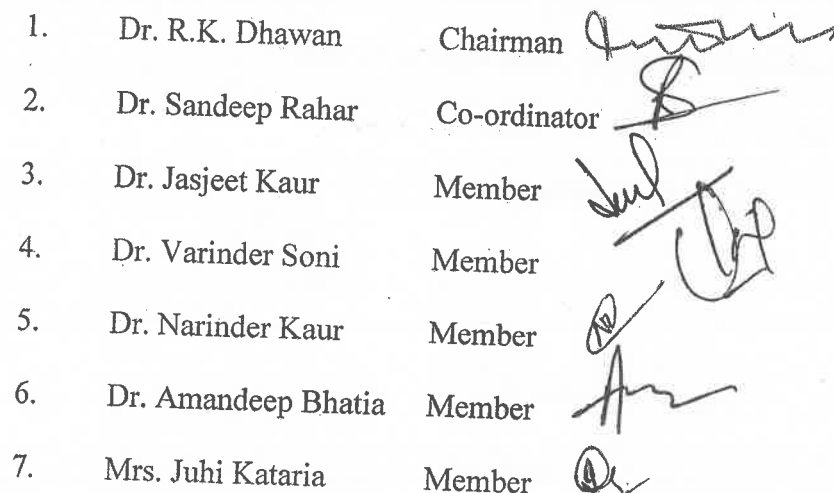 1. Dr. R.K. Dhawan Chairman
2. Dr. Sandeep Rahar Co-ordinator
3. Dr. Jasjeet Kaur Member
4. Dr. Varinder Soni Member
5. Dr. Narinder Kaur Member
6. Dr. Amandeep Bhatia Member
7. Mrs. Juhi Kataria Member